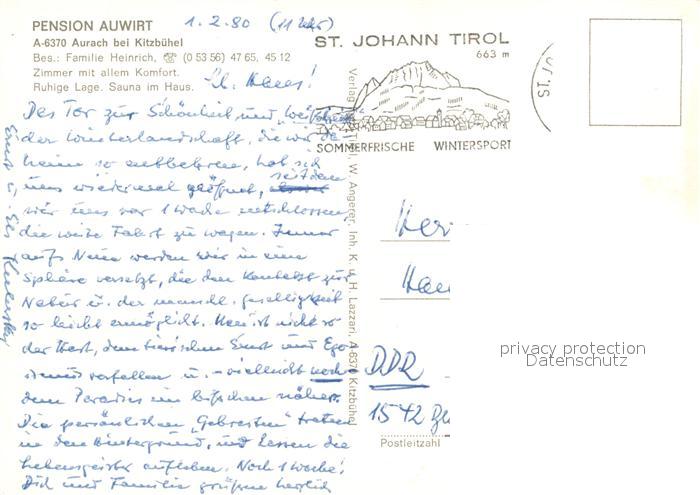 PENSION AUWIRT
1.2.80 (11 Uhr)
A-6370 Aurach bei Kitzbühel
Bes.: Familie Heinrich, ☏ (0 53 56) 47 65, 45 12
Zimmer mit allem Komfort.
Ruhige Lage. Sauna im Haus.
ST. JOHANN TIROL
663 m
SOMMERFRISCHE WINTERSPORT
ST. JO
Lb. Hans!
Das Tor zur Schönheit und
der Winterlandschaft, die wir da-
heim so entbehren, hat sich
uns wiedermal geöffnet, seitdem
wir uns vor 1 Woche entschlossen,
die weite Fahrt zu wagen. Immer
aufs Neue werden wir in eine
Sphäre versetzt, die den Kontakt zur
Natur u. der menschl. Geselligkeit
so leicht ermöglicht. Man ist nicht so
der Hast, dem tierischen Ernst und Ego-
ismus verfallen u. – vielleicht noch –
dem Paradies ein bißchen näher.
Die persönlichen „Gebresten" treten
in den Hintergrund, und lassen die
Lebensgeister aufleben. Noch 1 Woche!
Dich und Familie grüßen herzlich
Ernst u. Els
Verlag W. Angerer, Inh. K. & H. Lazzari, A-6370 Kitzbühel
Her
Han
DDR
1542
Postleitzahl
privacy protection
Datenschutz